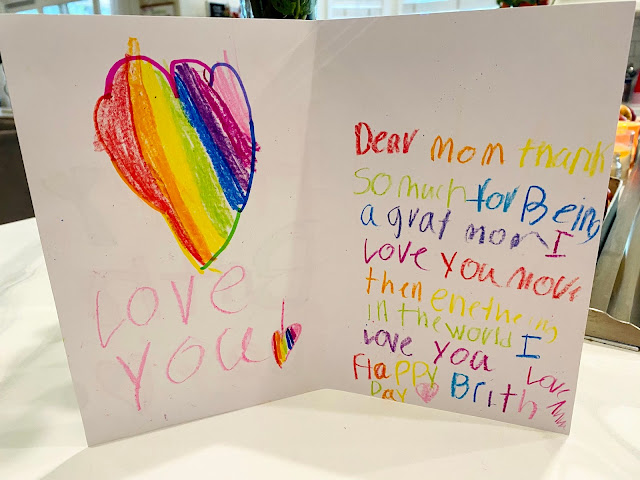 Love
you!
Dear mom thank
so much for Being
a grat mom I
Love You more
then enetheing
in the world I
Love you Love
Happy Brith
Day